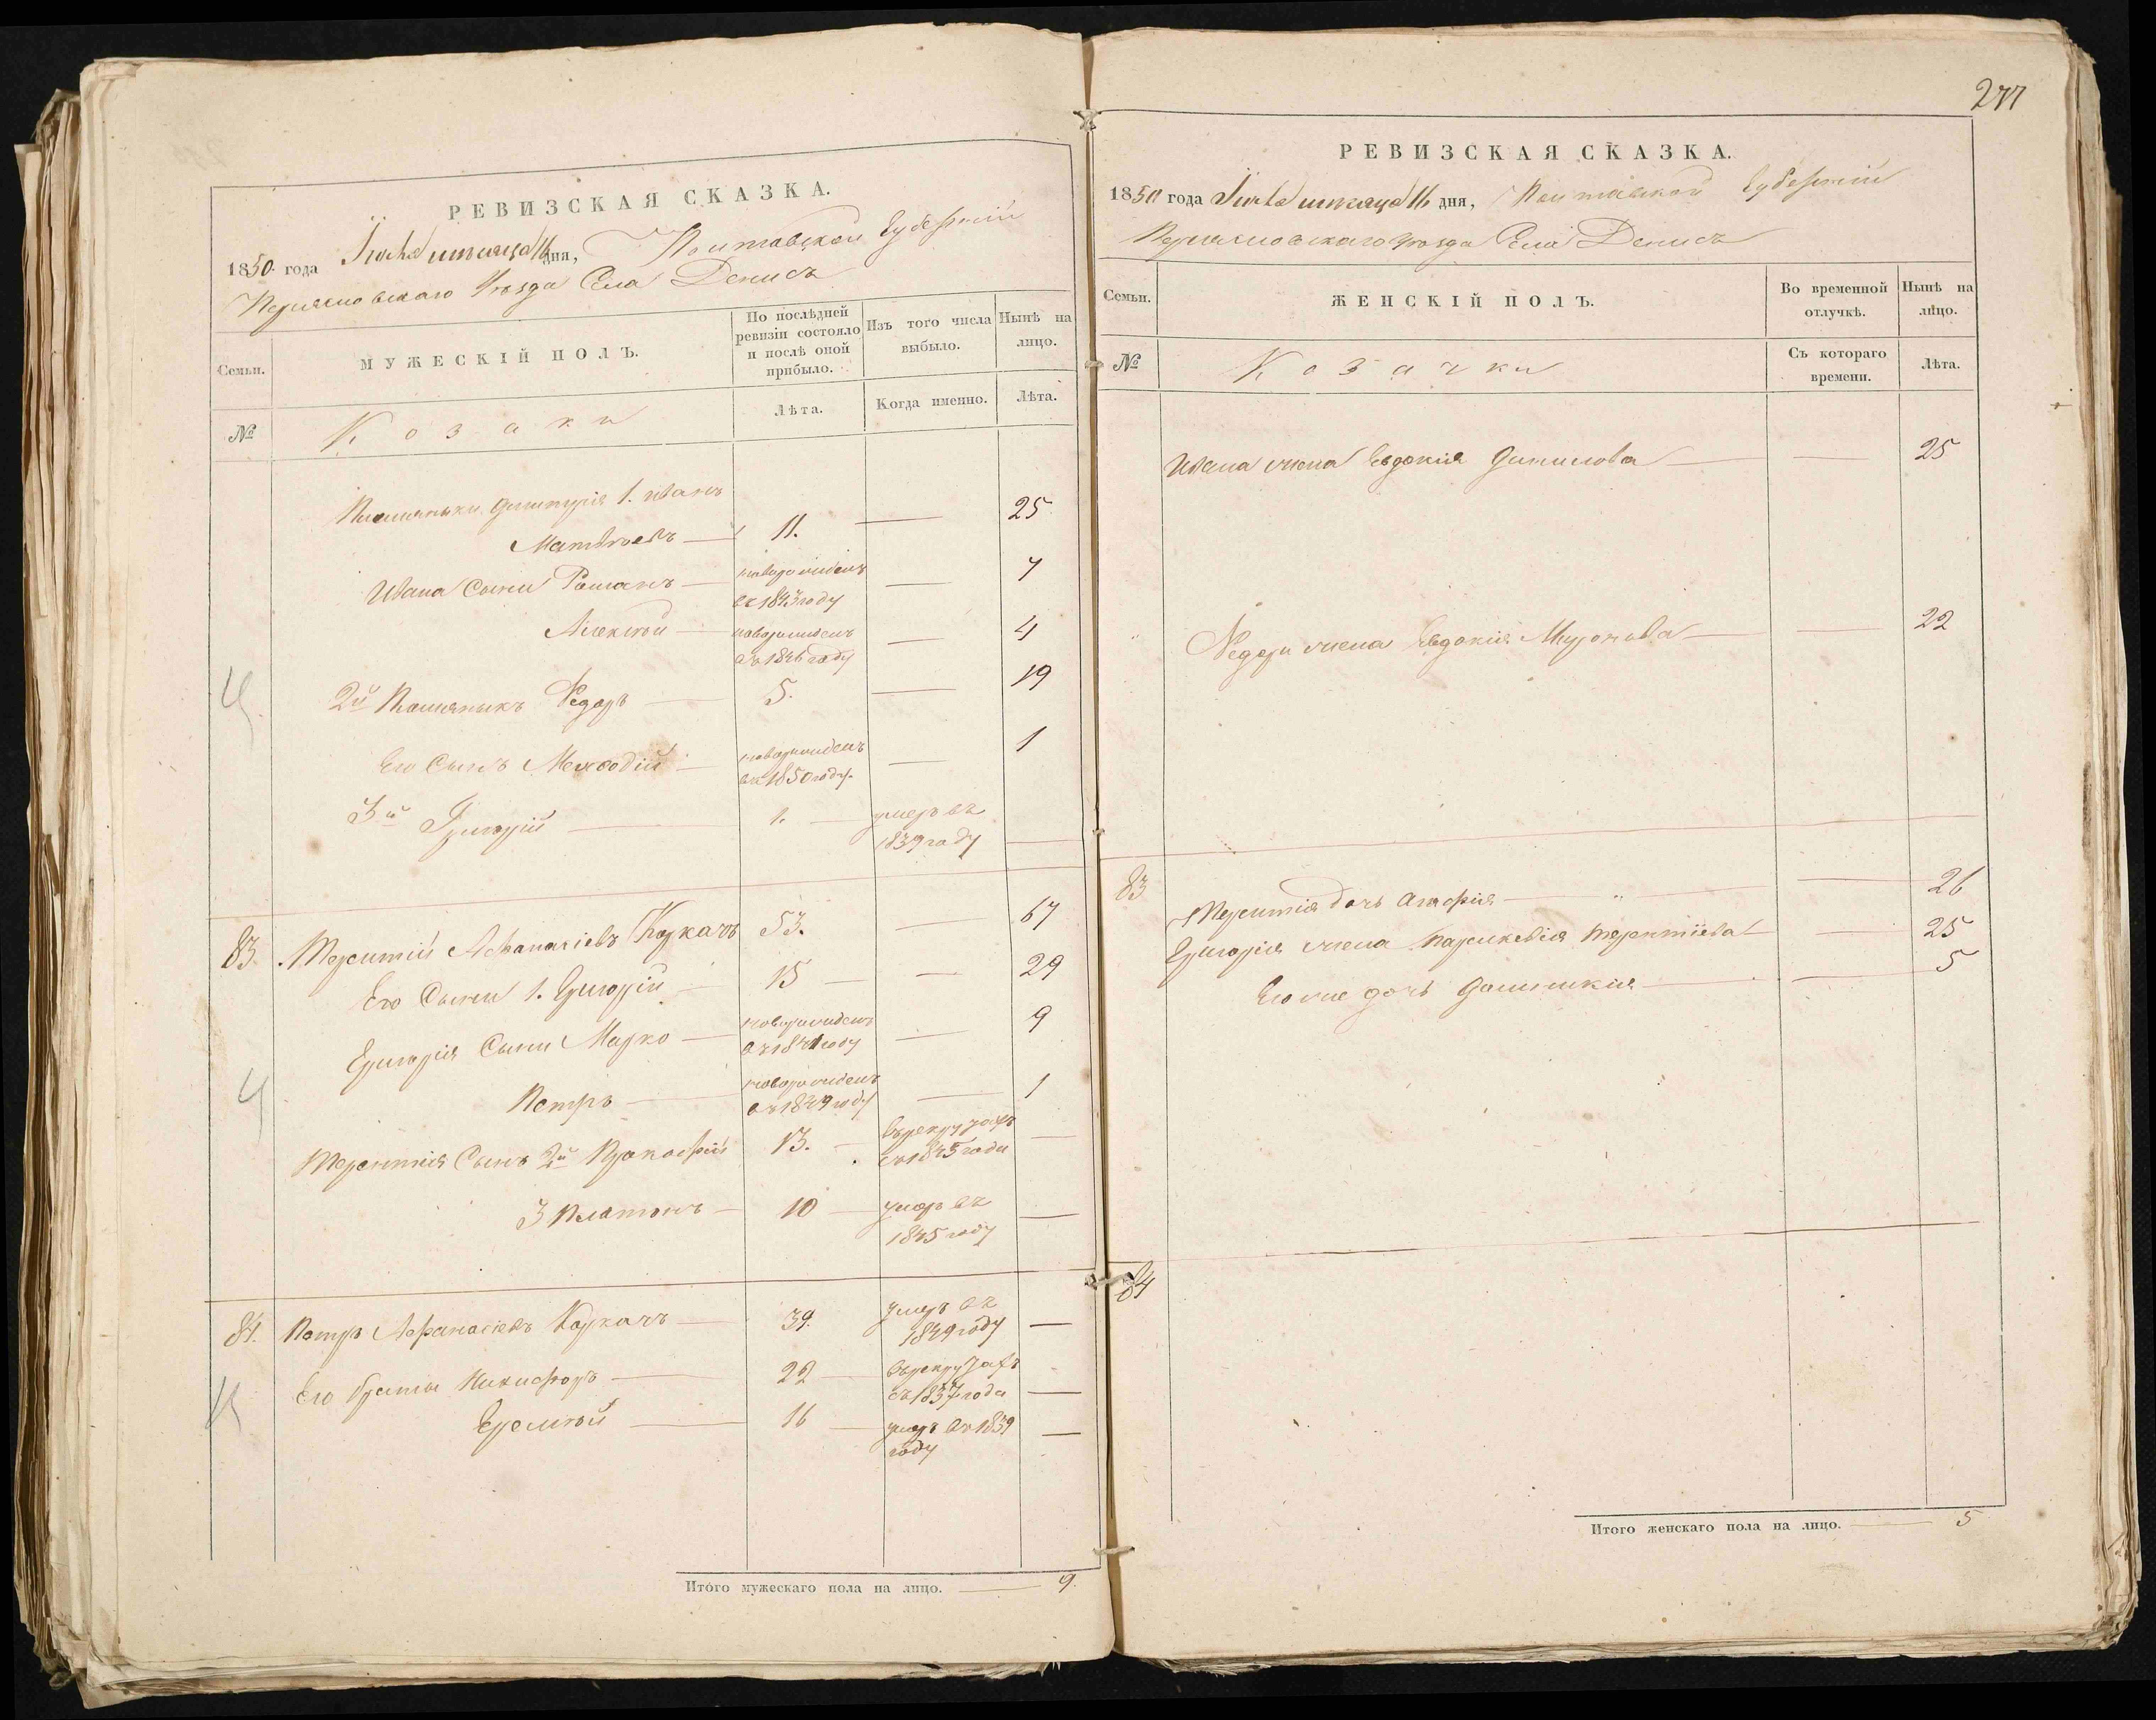 РЕВИЗСКАЯ СКАЗКА.
1850 года Июля месяца 16 дня, Полтавской Губернии
Переяславскаго Уѣзда Села Денисъ
Семьи.
МУЖЕСКІЙ ПОЛЪ.
По послѣдней ревизіи состояло и послѣ оной прибыло.
Изъ того числа выбыло.
Нынѣ на лицо.
№
Козаки
Лѣта.
Когда именно.
Лѣта.
Племянники Дмитрія 1. Иванъ
Матвѣевъ 11. 25
Ивана Сыны Романъ новорожденъ 7
въ 1843 году
Алексѣй новорожденъ 4
въ 1846 году
2й Племяникъ Федоръ 5. 19
Его Сынъ Мефодій новорожденъ 1
въ 1850 году
3й Григорій 1. умеръ въ
1839 году
83. Терентій Афанасіевъ Коркачъ 53. 67
Его Сыны 1. Григорій 15 29
Григорія Сыны Марко новорожденъ 9
въ 1841 году
Петръ новорожденъ 1
въ 1849 году
Терентія Сынъ 2й Прокофій 13. въ рекрутахъ
съ 1845 года
3 Платонъ 10 умеръ въ
1845 году
84. Петръ Афанасіевъ Коркачъ 39. умеръ въ
1849 году
Его братья Никифоръ 22 въ рекрутахъ
съ 1837 года
Еремѣй 16 умеръ въ 1839
году
Итого мужескаго пола на лицо. 9.
277
РЕВИЗСКАЯ СКАЗКА.
1850 года Июля месяца 16 дня, Полтавской Губерніи
Переяславскаго Уѣзда Села Денисъ
Семьи.
ЖЕНСКІЙ ПОЛЪ.
Во временной отлучкѣ.
Нынѣ на лицо.
№
Козачки
Съ котораго времени.
Лѣта.
Ивана жена Евдокія Данилова 25
Федора жена Евдокія Миронова 22
83 Терентія дочь Агафія 26
Григорія жена Параскевія Терентіева 25
Его же дочь Домникія 5
84
Итого женскаго пола на лицо. 5